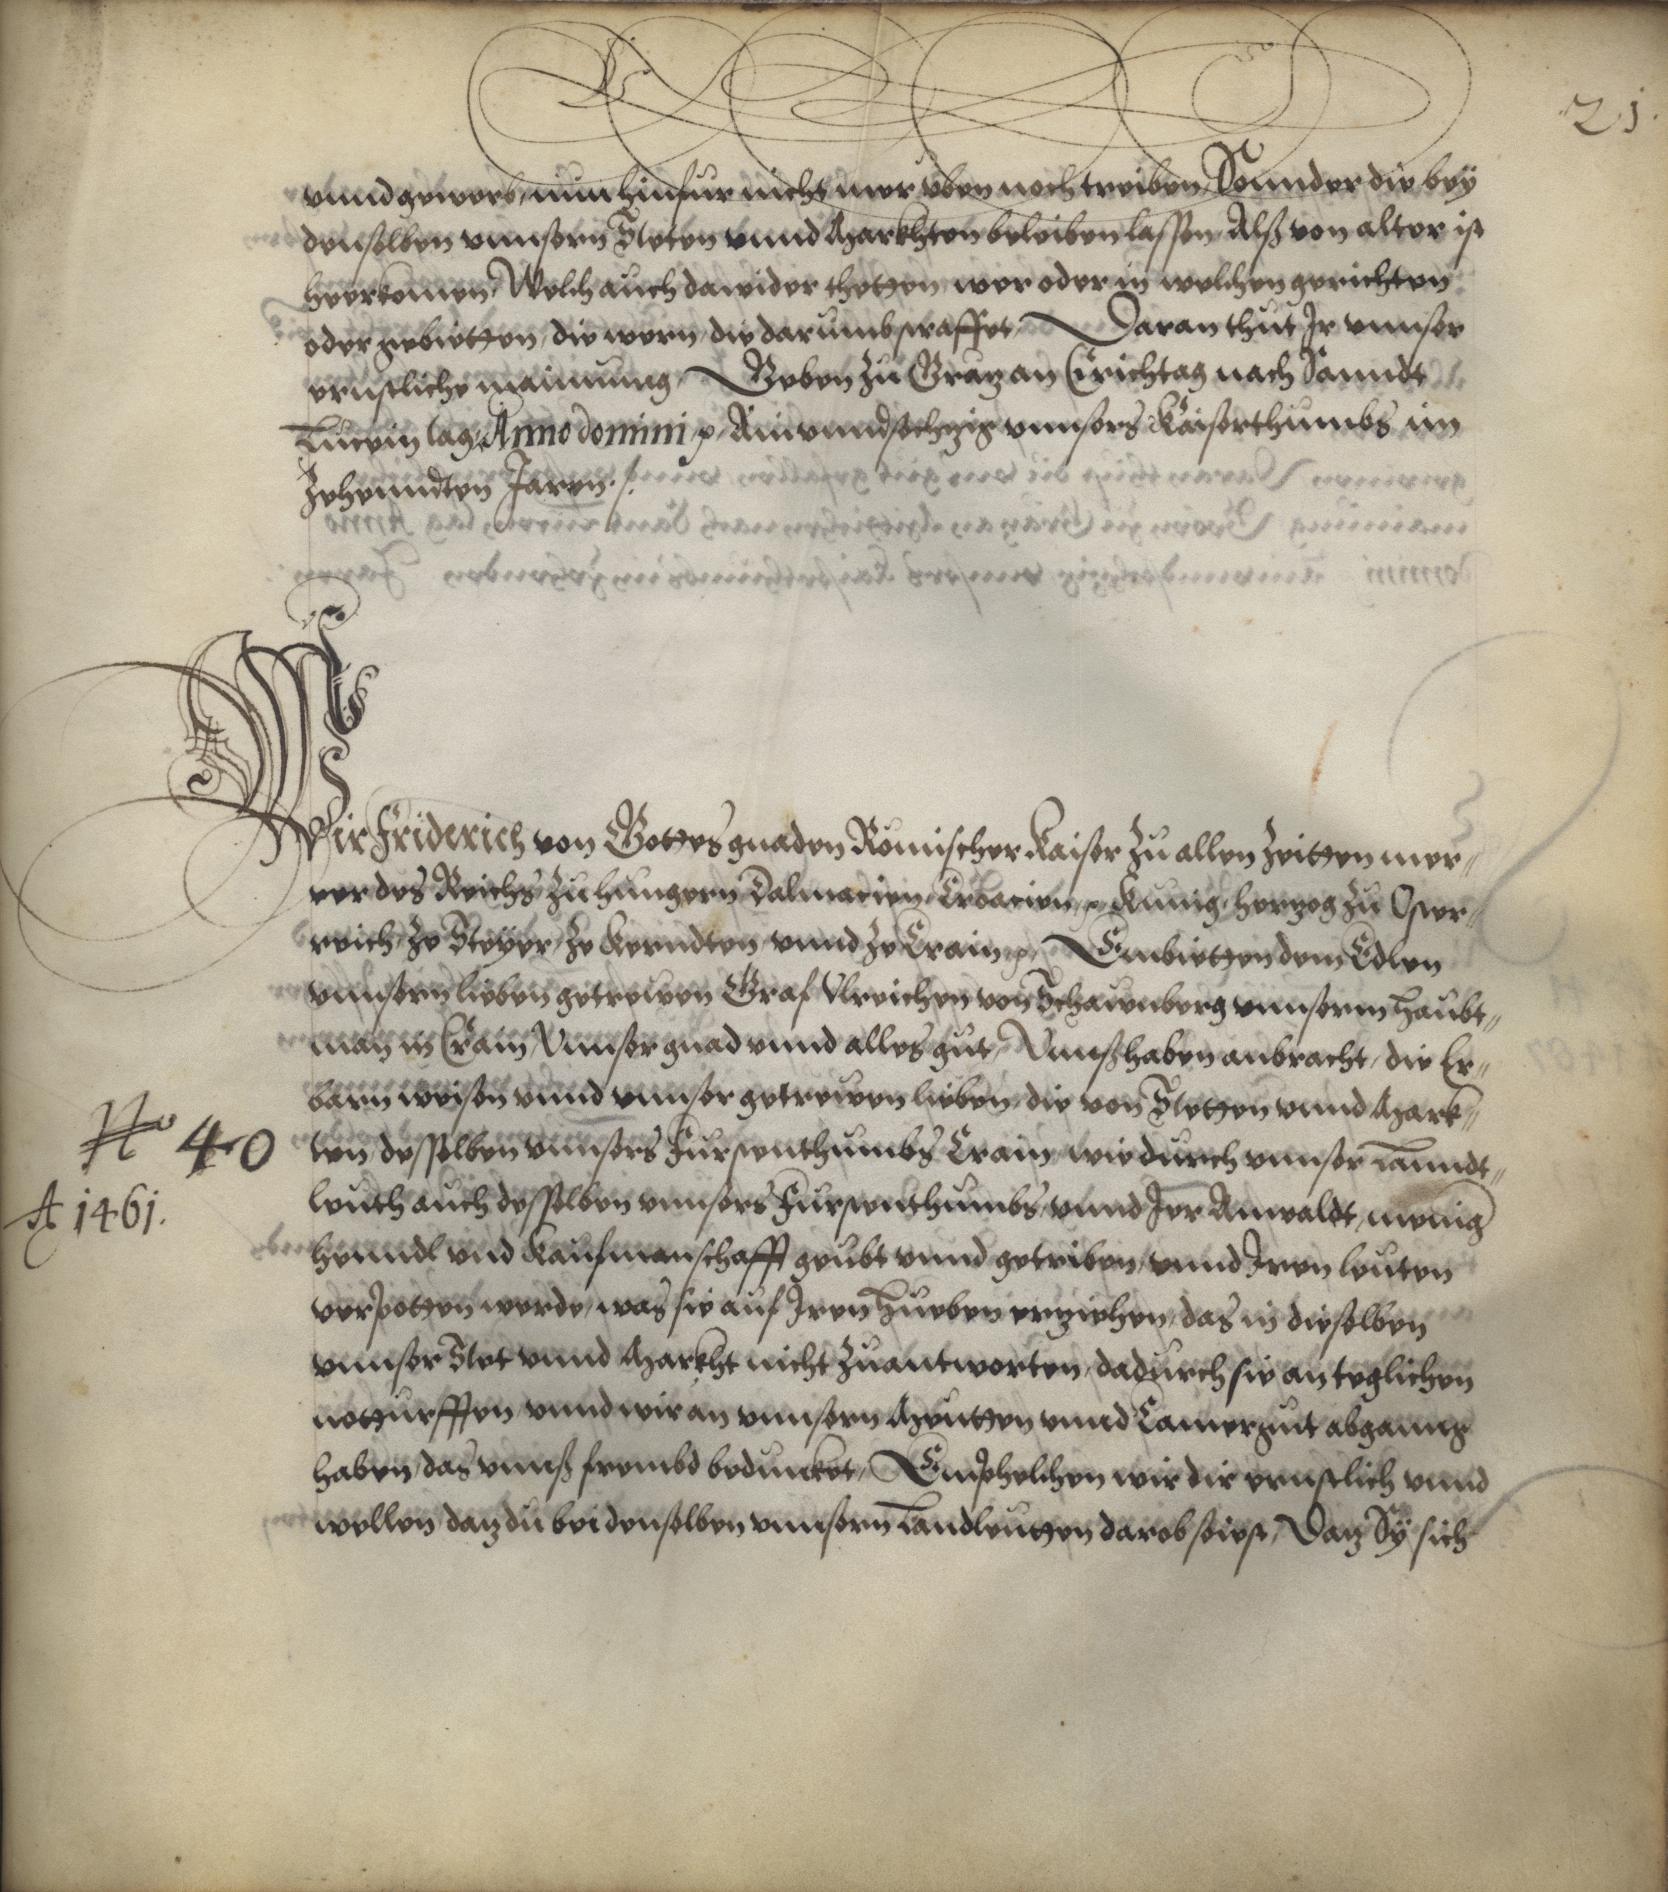 21.
vnnd gewerb, nun hinfur nicht mer vben noch treiben, Sonnder die bey
denselben vnnsern Steten vnnd Märkhten beleiben lassen, Alß von alter ist
heerkomen, Welch auch dawider thetten, wer oder in welchen gerichten
oder gebietten, die wern, die darumb straffet, Daran thut Ir vnnser
ernstliche mainung, Geben zu Graz an Erichtag nach Sanndt
Lucein tag, Anno domini ꝛc. Ainvnndsechzig vnnsers Kaiserthumbs im
Zehenndten Jaren ./.
Wir Friderich von Gottes gnaden Römischer Kaiser zu allen Zeitten mer„
rer des Reichs zu hungern Dalmacien, Croacien, ꝛc. Kunig, hertzog zu Öster„
reich, Ze Steyer, Ze Kerndten vnnd Ze Crain ꝛc, Embietten dem Edlen
vnnsern lieben getrewen Graf Vlreichen von Schawnberg vnnserm haubt„
man in Crain, Vnnser gnad vnnd alles gut, Vnnß haben anbracht, die Er„
barn weisen vnnd vnnser getrewen lieben, die von Stetten vnnd Märk„
ten desselben vnnsers Furstenthumbs Crain, wie durch vnnser Lanndt„
leuth auch desselben vnnsers Furstenthumbs, vnnd Irr Anwaldt, menig
henndl vnd Kaufmanschafft geubt vnnd getriben, vnnd Iren leuten
verpotten werde, was sie auf Iren Hueben erziehen, das in dieselben
vnnser Stet vnnd Märkht nicht zuantworten, dadurch sie an teglichen
notturfften, vnnd wir an vnnsern Meutten vnnd Camergut abganng
haben, das vnnß frembd beduncket, Emphelchen wir dir ernstlich vnnd
wellen daz du bei denselben vnnsern Landleutten darob seiest, Daz Sÿ sich
No 40
A 1461.